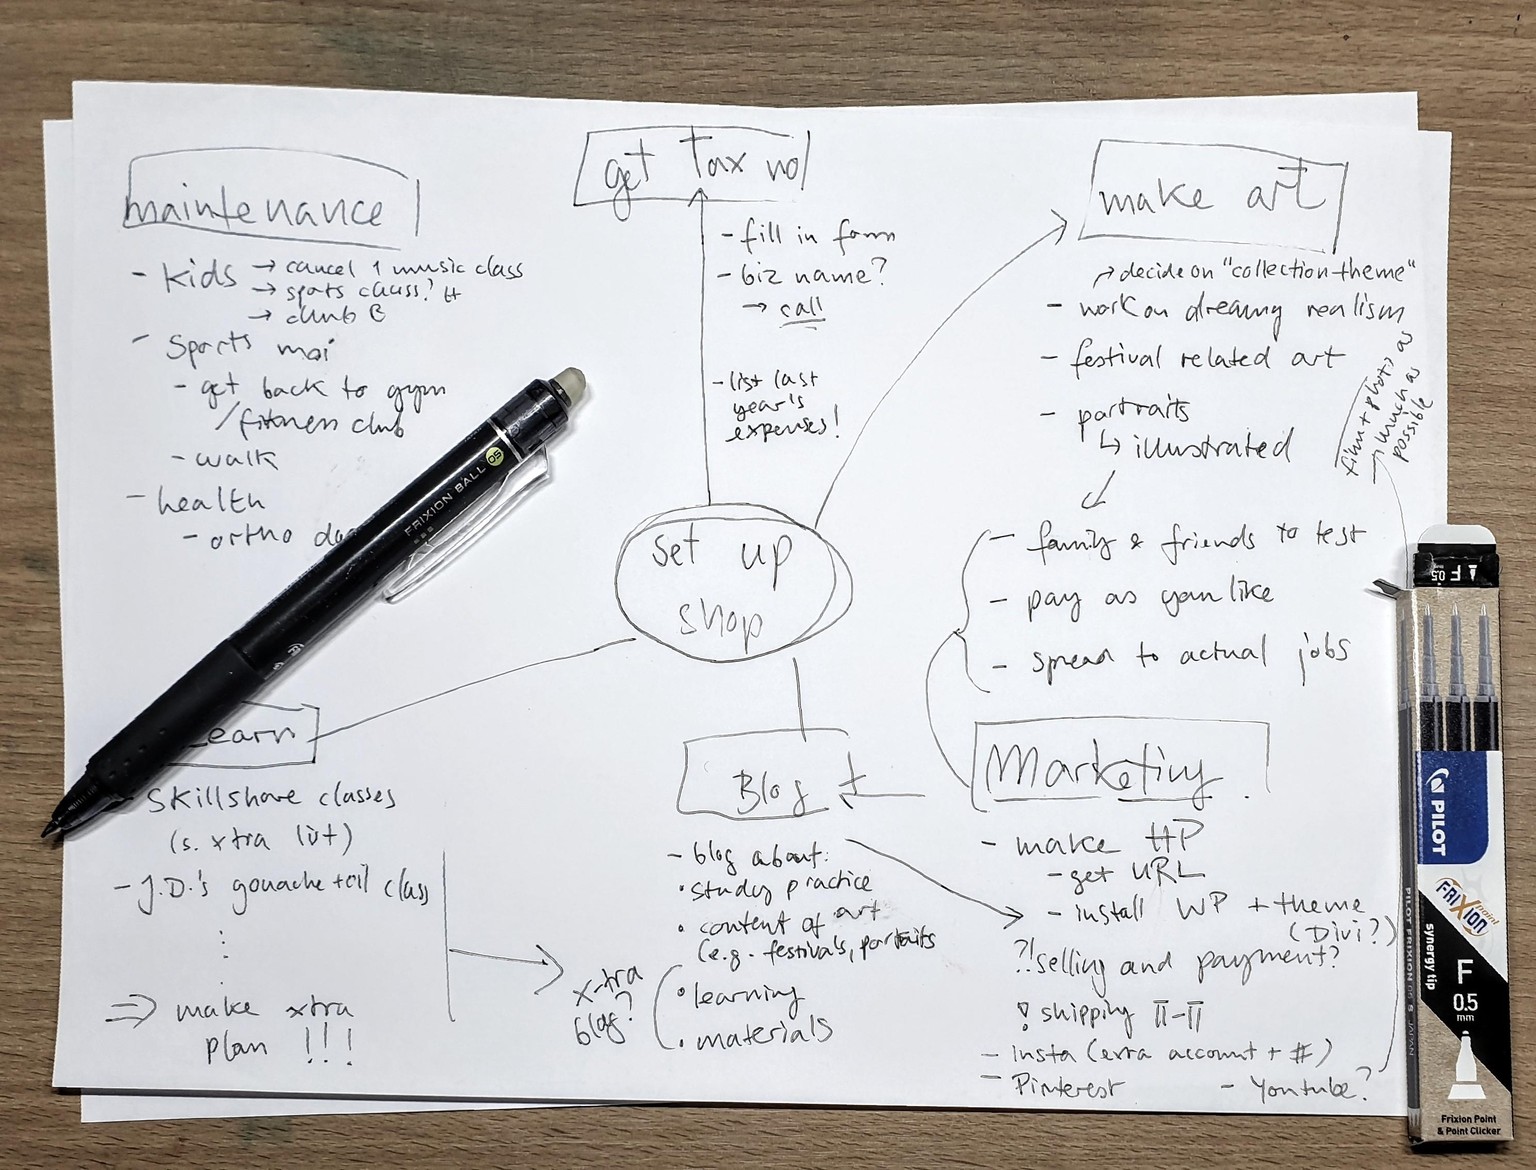 maintenance
- kids → cancel 1 music class
→ sports class? H
→ climb E
- Sports moi
- get back to gym
/fitness club
- walk
- health
- ortho
get Tax no
- fill in form
- biz name?
→ call
- list last
year's
expenses!
make art
↗ decide on "collection-theme"
- work on dreamy realism
- festival related art
- portraits
↳ illustrated
film + photo as
much as
possible
- family & friends to test
- pay as you like
- spread to actual jobs
set up
shop
Learn
Skillshare classes
(s. xtra list)
- J.D.'s gouache + oil class
⇒ make xtra
plan !!!
Blog
- blog about:
• study practice
• content of art
(e.g. festivals, portraits
• learning
• materials
x-tra
blog?
Marketing
- make HP
- get URL
- install WP + theme
(Divi?)
?! selling and payment?
! shipping
- insta (extra account + #)
- Pinterest
- Youtube?
FRIXION BALL 05
F 0.5
PILOT
FRIXION point
synergy tip
F
0.5
mm
Frixion Point
& Point Clicker